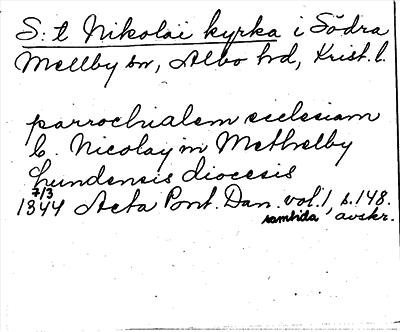 S:t Nikolai kyrka i Södra
Mellby sn, Albo hd, Krist. l.
parrochialem ecclesiam
b. Nicolay in Methelby
Lundensis diocesis
7/3
1344 Acta Pont. Dan. vol. 1, s. 148.
samtida avskr.